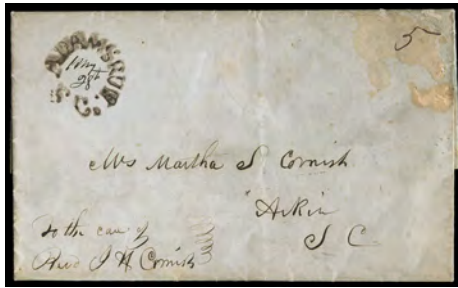 ADAMS RUN
S. C.
May
28th
5
Mrs Martha S Cornish
Aiken
S C.
To the care of
Revd J H Cornish